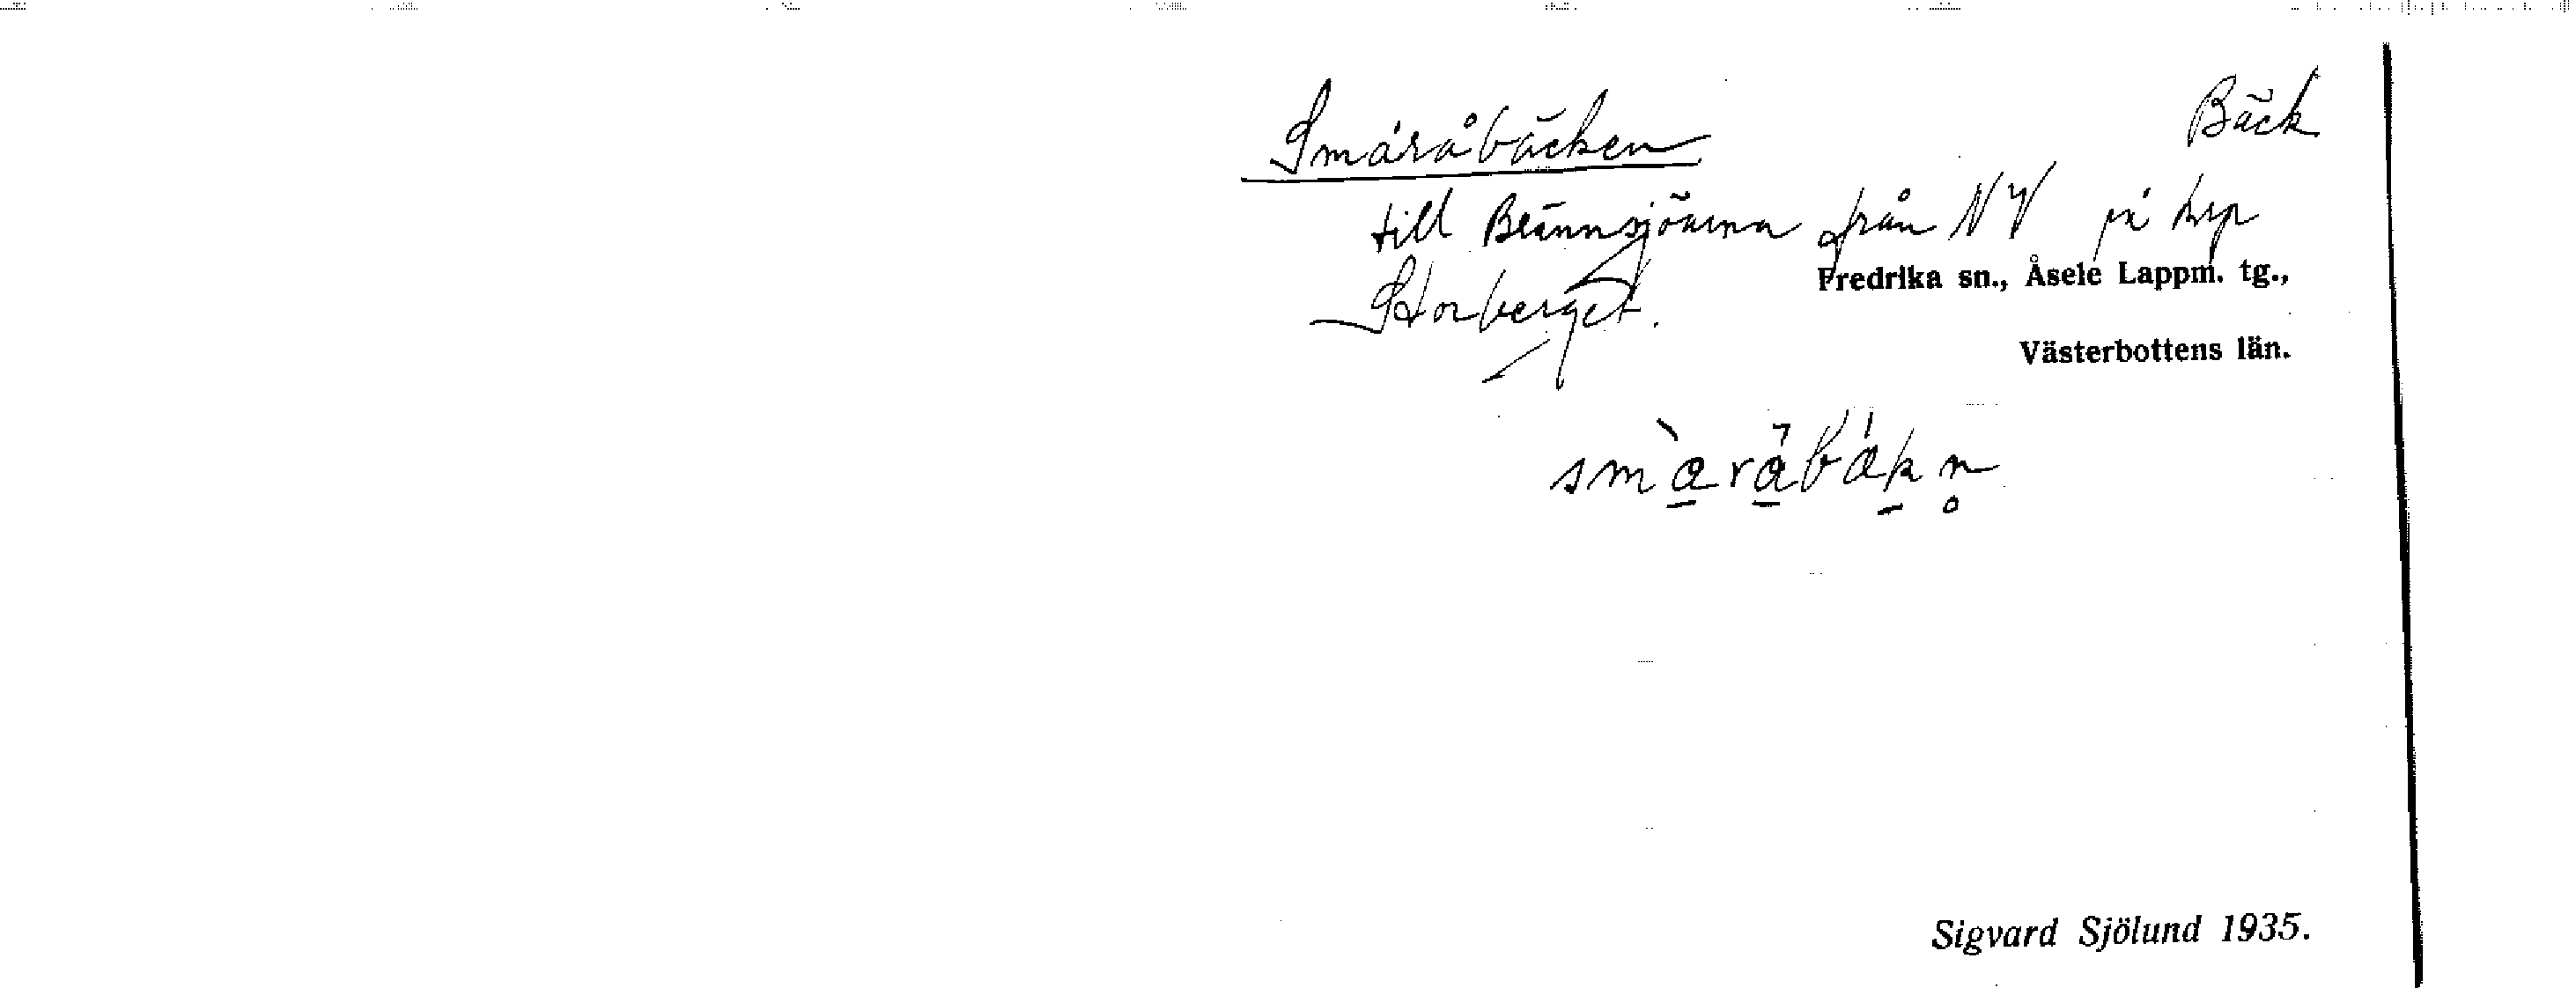 Småråbäcken Bäck
till Brännsjöarna från NV på krp
Fredrika sn., Åsele Lappm. tg.,
Storberget.
Västerbottens län.
Sigvard Sjölund 1935.